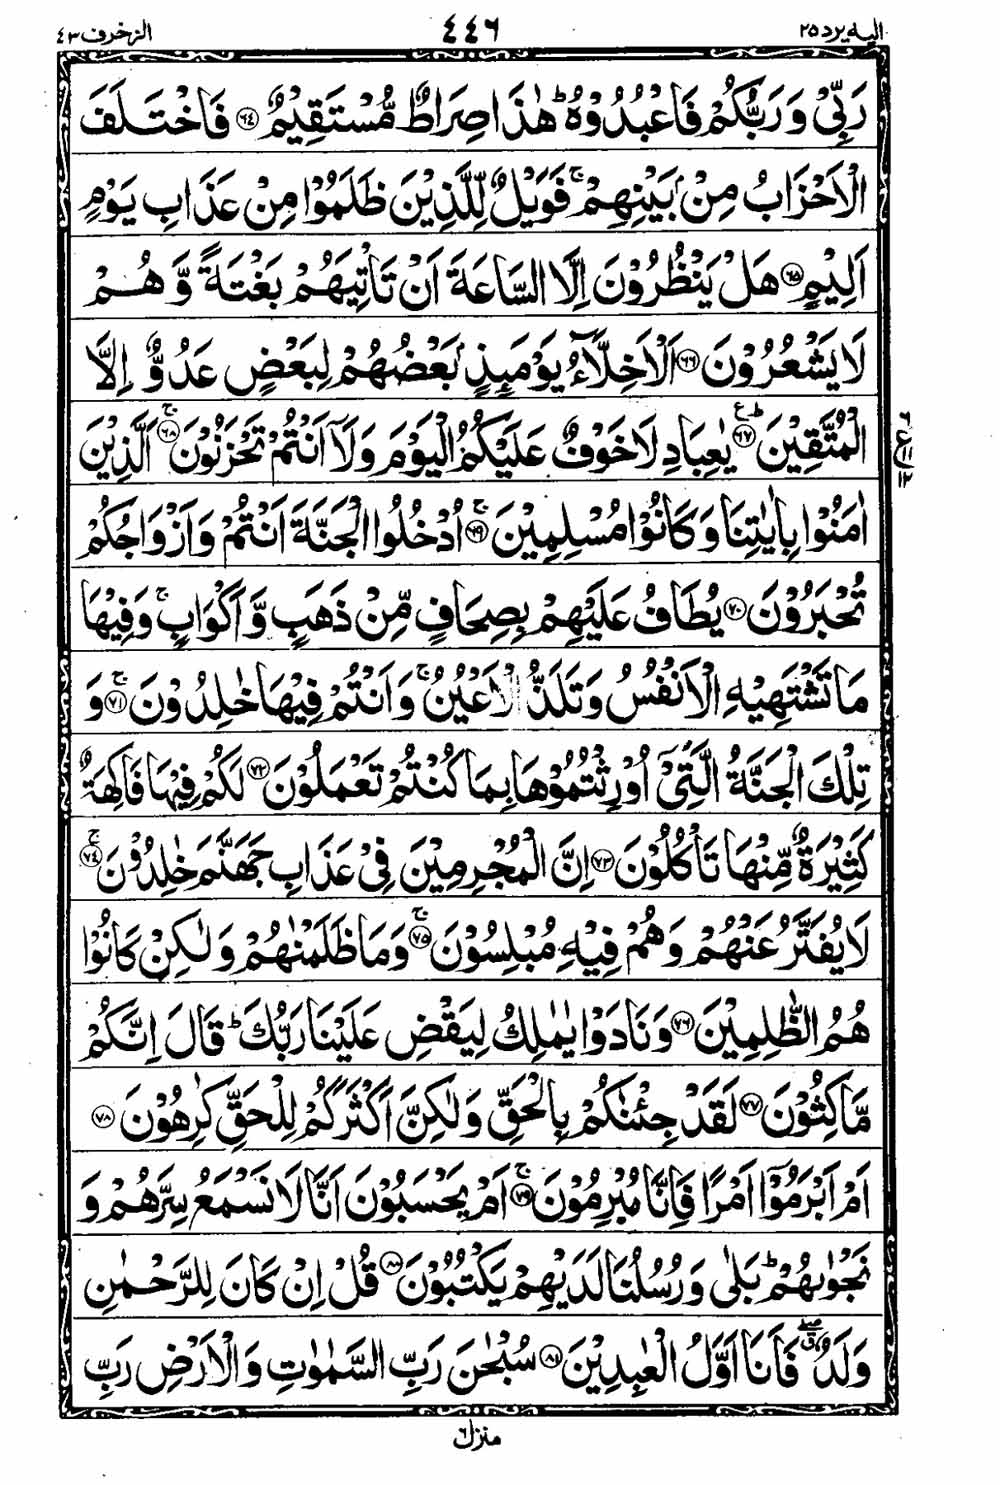 اليه يرد ٢٥ ٤٤٦ الزخرف ٤٣
رَبِّىْ وَرَبُّكُمْ فَاعْبُدُوْهُ ؕ هٰذَا صِرَاطٌ مُّسْتَقِيْمٌ ﴿۶۴﴾ فَاخْتَلَفَ
الْاَحْزَابُ مِنْۢ بَيْنِهِمْ ۚ فَوَيْلٌ لِّلَّذِيْنَ ظَلَمُوْا مِنْ عَذَابِ يَوْمٍ
اَلِيْمٍ ﴿۶۵﴾ هَلْ يَنْظُرُوْنَ اِلَّا السَّاعَةَ اَنْ تَاْتِيَهُمْ بَغْتَةً وَّهُمْ
لَا يَشْعُرُوْنَ ﴿۶۶﴾ اَلْاَخِلَّآءُ يَوْمَئِذٍۢ بَعْضُهُمْ لِبَعْضٍ عَدُوٌّ اِلَّا
الْمُتَّقِيْنَ ﴿۶۷﴾ؕ ع يٰعِبَادِ لَا خَوْفٌ عَلَيْكُمُ الْيَوْمَ وَلَاۤ اَنْتُمْ تَحْزَنُوْنَ ﴿۶۸﴾ۚ اَلَّذِيْنَ
٦ ع ١١ ١٢
اٰمَنُوْا بِاٰيٰتِنَا وَكَانُوْا مُسْلِمِيْنَ ﴿۶۹﴾ۚ اُدْخُلُوا الْجَنَّةَ اَنْتُمْ وَاَزْوَاجُكُمْ
تُحْبَرُوْنَ ﴿۷۰﴾ يُطَافُ عَلَيْهِمْ بِصِحَافٍ مِّنْ ذَهَبٍ وَّاَكْوَابٍ ۚ وَفِيْهَا
مَا تَشْتَهِيْهِ الْاَنْفُسُ وَتَلَذُّ الْاَعْيُنُ ۚ وَاَنْتُمْ فِيْهَا خٰلِدُوْنَ ﴿۷۱﴾ۚ وَ
تِلْكَ الْجَنَّةُ الَّتِىْۤ اُوْرِثْتُمُوْهَا بِمَا كُنْتُمْ تَعْمَلُوْنَ ﴿۷۲﴾ لَكُمْ فِيْهَا فَاكِهَةٌ
كَثِيْرَةٌ مِّنْهَا تَاْكُلُوْنَ ﴿۷۳﴾ اِنَّ الْمُجْرِمِيْنَ فِىْ عَذَابِ جَهَنَّمَ خٰلِدُوْنَ ﴿۷۴﴾ۚ
لَا يُفَتَّرُ عَنْهُمْ وَهُمْ فِيْهِ مُبْلِسُوْنَ ﴿۷۵﴾ۚ وَمَا ظَلَمْنٰهُمْ وَلٰكِنْ كَانُوْا
هُمُ الظّٰلِمِيْنَ ﴿۷۶﴾ وَنَادَوْا يٰمٰلِكُ لِيَقْضِ عَلَيْنَا رَبُّكَ ؕ قَالَ اِنَّكُمْ
مّٰكِثُوْنَ ﴿۷۷﴾ لَقَدْ جِئْنٰكُمْ بِالْحَقِّ وَلٰكِنَّ اَكْثَرَكُمْ لِلْحَقِّ كٰرِهُوْنَ ﴿۷۸﴾
اَمْ اَبْرَمُوْۤا اَمْرًا فَاِنَّا مُبْرِمُوْنَ ﴿۷۹﴾ۚ اَمْ يَحْسَبُوْنَ اَنَّا لَا نَسْمَعُ سِرَّهُمْ وَ
نَجْوٰىهُمْ ؕ بَلٰى وَرُسُلُنَا لَدَيْهِمْ يَكْتُبُوْنَ ﴿۸۰﴾ قُلْ اِنْ كَانَ لِلرَّحْمٰنِ
وَلَدٌ ۖ فَاَنَا اَوَّلُ الْعٰبِدِيْنَ ﴿۸۱﴾ سُبْحٰنَ رَبِّ السَّمٰوٰتِ وَالْاَرْضِ رَبِّ
منزل ٦